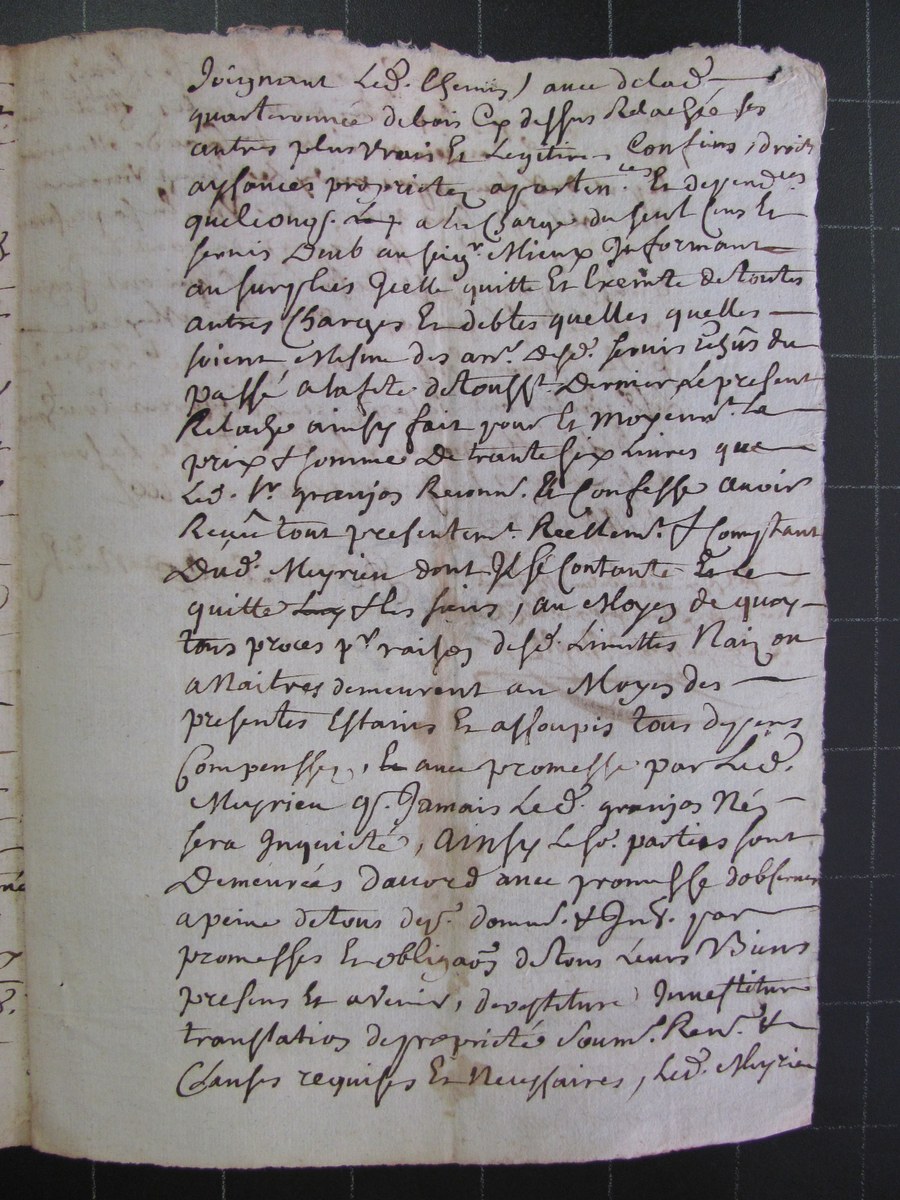 Joignant Led. Chemin) avec delad.
quarteronnée debois Cy dessus Relachée ses
autres plus vrais Et Legitimes Confins, droits
aysances proprietez apartin.ces Et depend.ces
quelconq. a la Charge du seul Cens Et
servis Deub au seig.r Mieux Informant
au surplus Icelle quitte Et Exempte detoutes
autres Charges Et debtes quelles quelles
soient Mesme des arr. desd. servis Echûs du
passé a la fete detouss.t Dernier Le present
Relache ainsy fait pour Et Moyenn.t Le
prix & somme De trante six Livres que
Led. Sr. granjos Reconn. Et Confesse avoir
Reçû tout presentem.t Réellem.t & Comptant
Dud. Meyrieu dont Il se Contante Et Le
quitte & les siens, au Moyen de quoy
tous proces p.r raison desd. Limittes Naiz ou
a Naitres demeurent au Moyen des
presentes Estains Et assoupis tous depens
Compenssez, avec promesse par Led.
Meyrieu q. Jamais Led. granjos Nén
sera Inquieté, Ainsy Lesd. parties sont
Demeurées Daccord avec promesse dobserver
a peine detous dep. domm. & Int. par
promesses Et obligaôn detous Leurs Biens
presens Et avenir, devestiture Investiture
translation deproprieté soum. Ren. &
Clauses requises Et Necessaires, Led. Meyrieu